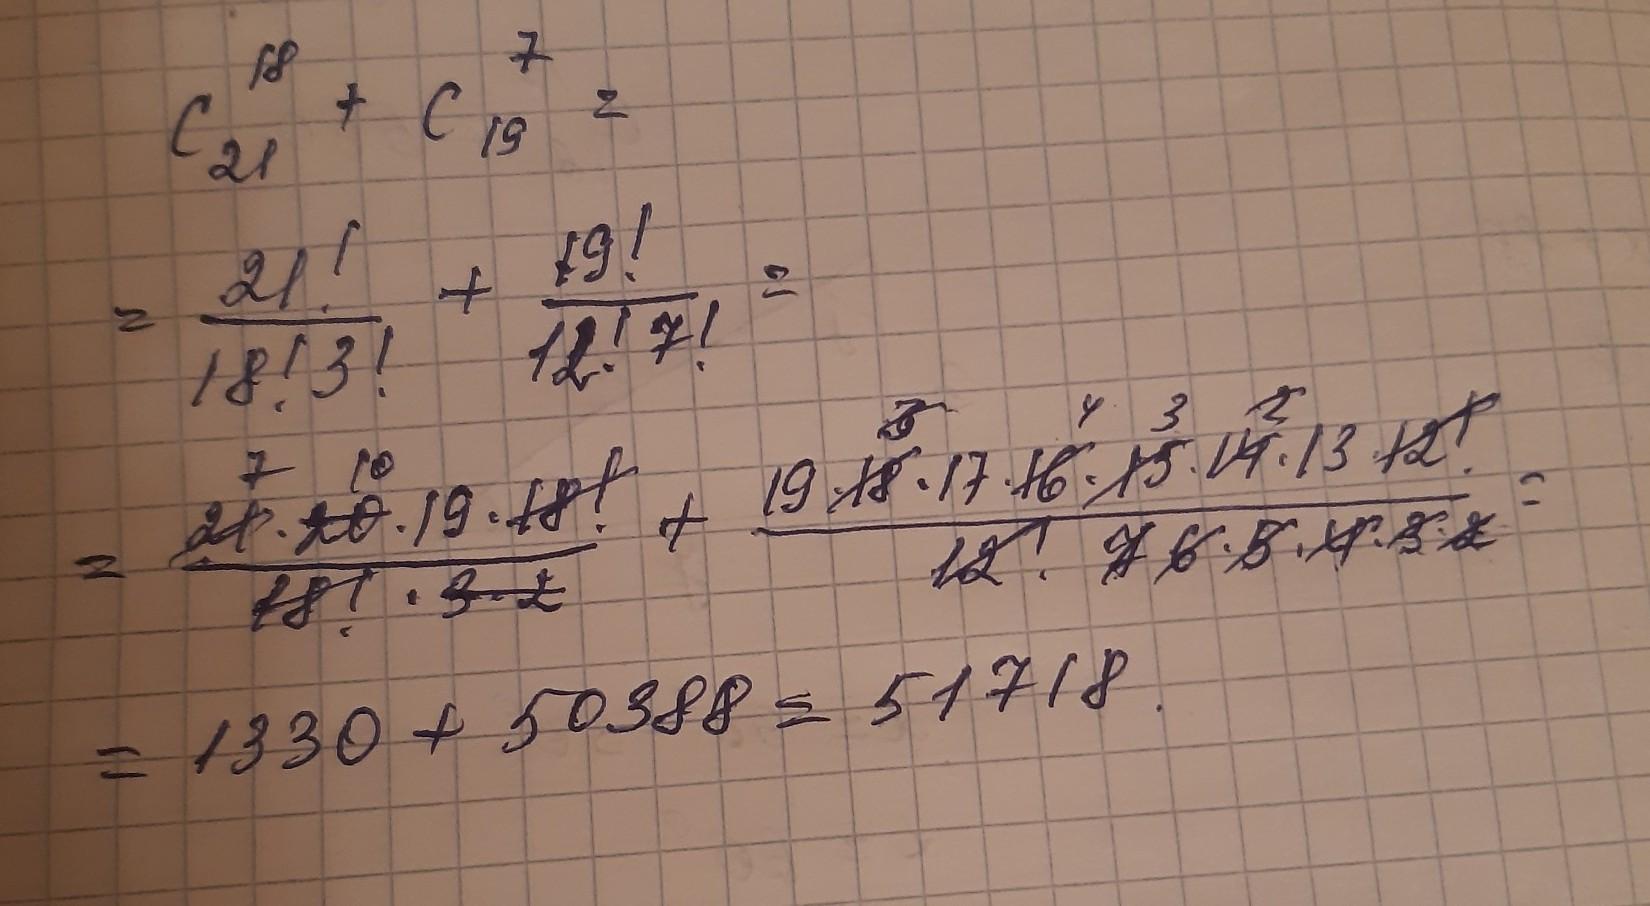 C₂₁¹⁸ + C₁₉⁷ =
= 21!/(18! 3!) + 19!/(12! 7!) =
= (21 · 20 · 19 · 18!)/(18! · 3 · 2) + (19 · 18 · 17 · 16 · 15 · 14 · 13 · 12!)/(12! 7 6 · 5 · 4 · 3 · 2) =
= 1330 + 50388 = 51718.